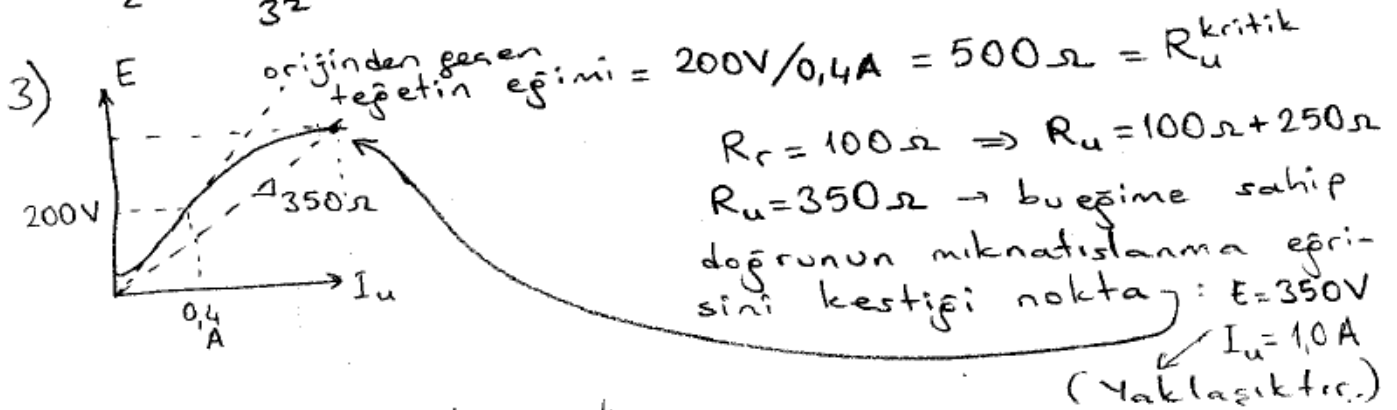 2 32
3) E orijinden geçen
teğetin eğimi = 200V/0,4A = 500Ω = Ru kritik
Rr = 100Ω ⇒ Ru = 100Ω + 250Ω
200V 350Ω Ru = 350Ω → bu eğime sahip
doğrunun mıknatıslanma eğri-
0,4 A Iu sini kestiği nokta : E = 350V
Iu = 1,0 A
(Yaklaşıktır.)